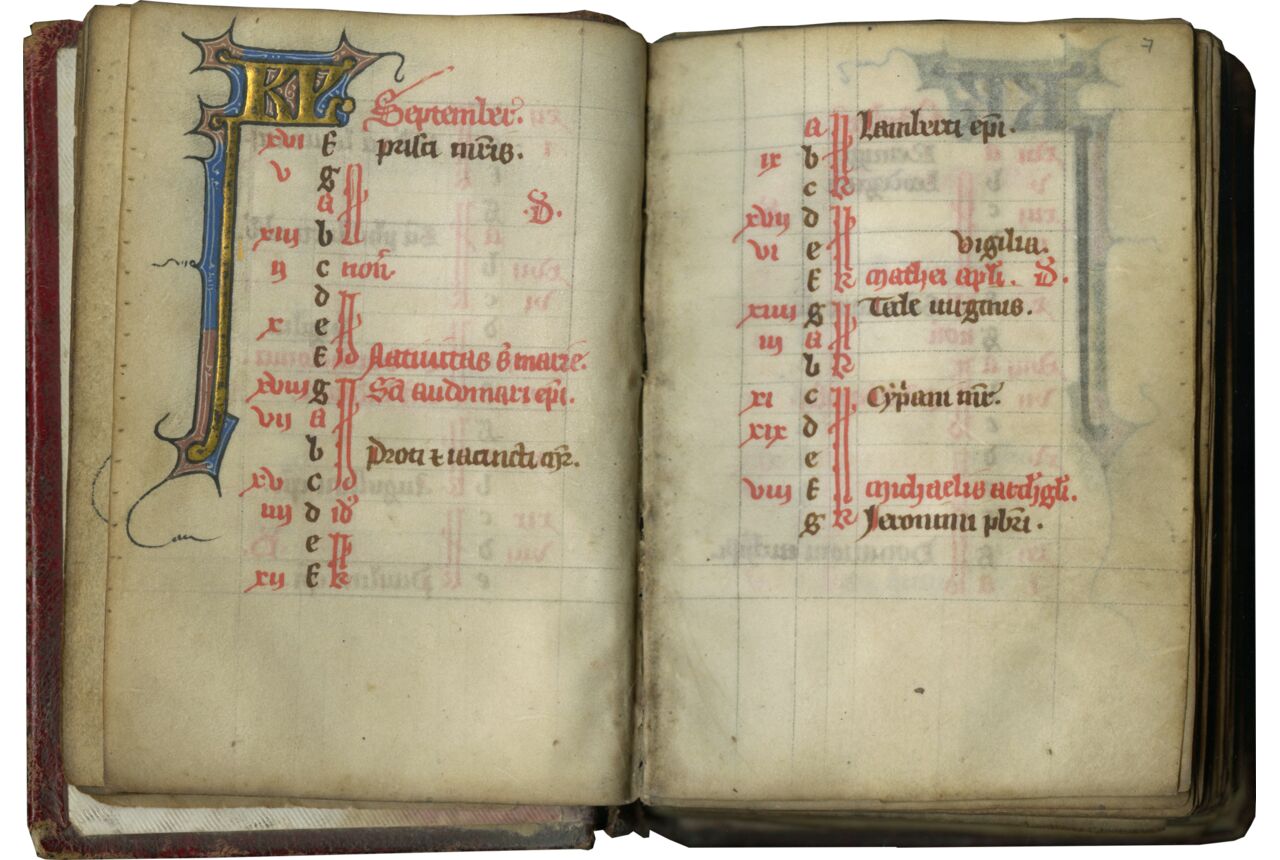 KL
September.
xvi f prisci mris.
v g
a .D.
xiii b
ii c non
d
x e
f id Nativitas b marie.
xviii g Sci audomari epi.
vii a
b Proti et iacincti mr.
xv c
iiii d id
e
xii f k
7
a Lamberti epi.
ix b
c k
xvii d
vi e vigilia.
f k mathei apli. D.
xiiii g Tecle virginis.
iii a
b k
xi c Cypriani mr.
xix d
e
viii f michaelis archgli.
g k Jeronimi pbri.